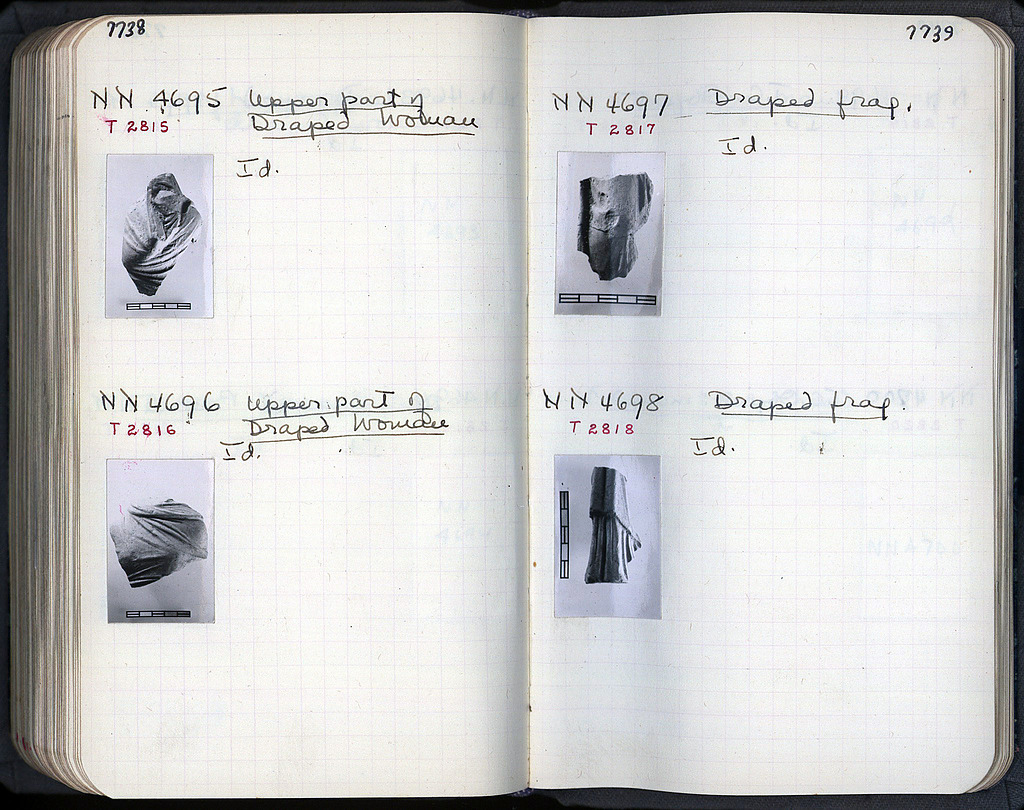 7738
NN 4695 Upper part of
T 2815 Draped Woman
Id.
NN 4696 Upper part of
T 2816 Draped Woman
Id.
7739
NN 4697 Draped frag.
T 2817
Id.
NN 4698 Draped frag.
T 2818
Id.